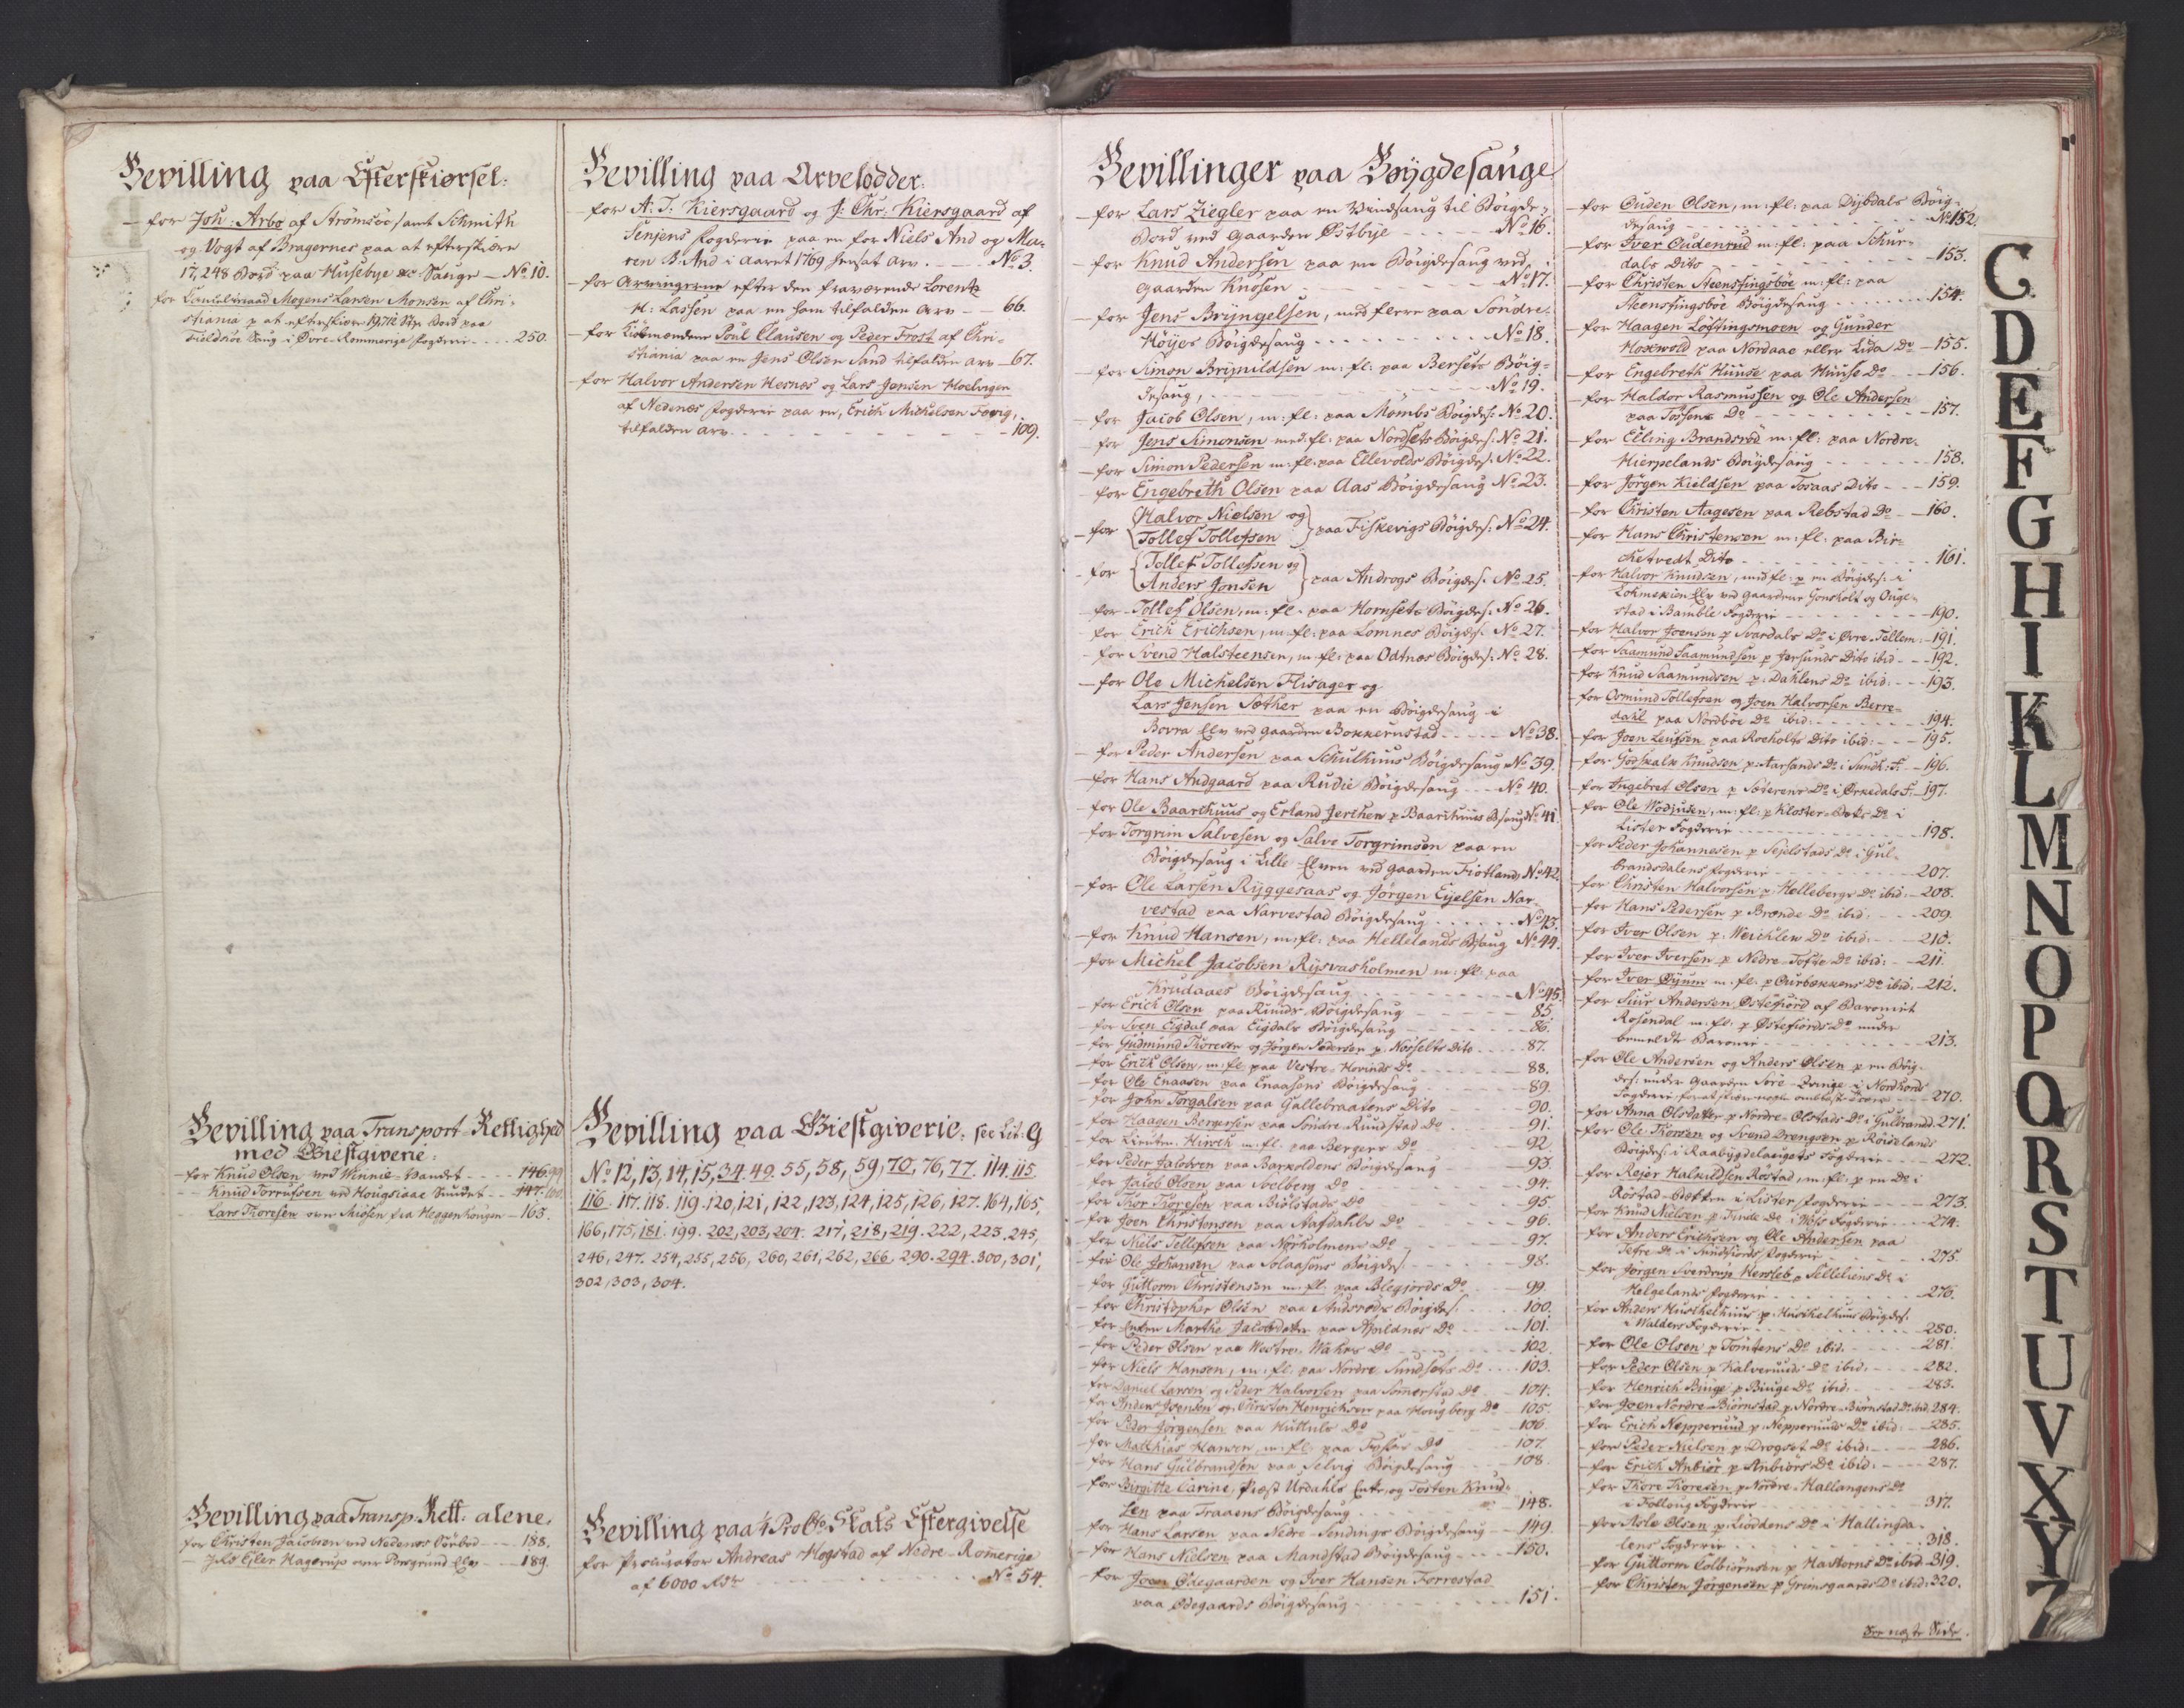 Bevilling paa Efterskiørsel:
- for Joh: Arbo af Strømsøe samt Schmith
og Vogt af Bragernes paa at efterskiøre
17,248 Bord paa Husebye &c: Sauge - No 10.
for Cancelieraad Mogens Larsen Monsen af Chri-
stiania p at efterskiære 19,712 Stk Bord paa
Saug i Øvre-Rommerige fogderie - - - 250.
Bevilling paa Transport-Rettighed
med Giestgiverie:
- for Knud Olsen ved Winnie-Vandet - - - 146.
- Knud Torrufsen ved Hougsiaae Sundet - - 147.
- Lars Thoresen over Miøsen fra Heggenhougen - 163.
Bevilling paa Transp: Rett: alene.
for Christen Jacobsen ved Nedenes Sørbod - - 188.
- Jeld Ejler Hagerup over Porsgrund Elv - - 189.
Bevilling paa Arvelodder:
- for A: T: Kiersgaard og J: Chr: Kiersgaard af
Senjens Fogderie paa en for Niels And og Ma-
ren B: And i aaret 1769 hensat Arv. - - No 3.
- for Arvingerne efter den fraværende Lorentz
H: Lassen paa en ham tilfalden Arv - - 66.
- for Kiøbmændene Poul Clausen og Peder Frost af Chri-
stiania paa en Jens Olsen Sand tilfalden arv - 67.
- for Halvor Andersen Hesnes og Lars Jensen Moelvigen
af Nedenes Fogderie paa en, Erich Michelsen Fevig,
tilfalden arv. - - - 109.
Bevilling paa Giestgiverie: see Lit: G
No 12, 13, 14, 15, 34. 49. 55, 58, 59, 70, 76, 77. 114. 115.
116. 117. 118. 119. 120, 121, 122, 123, 124, 125, 126, 127. 164, 165,
166, 175, 181. 199. 202, 203, 204. 217, 218, 219. 222, 223. 245,
246, 247. 254, 255, 256, 260, 261, 262, 266. 290. 294. 300, 301,
302, 303, 304.
Bevilling paa 1/4 Pro Cto Skats Eftergivelse
for Procurator Andreas Hogstad af Nedre-Romerige
af 6000 Rdr - - - No 54.
Bevillinger paa Bøygdesauge
- for Lars Ziegler paa en Vandsaug til Bøigde-
Bord ved Gaarden Østbye - - - No 16.
- for Knud Andersen paa en Bøigdesaug ved
Gaarden Knosen - - - No 17.
- for Jens Bryngelsen, med flere paa Søndre-
Høyes Bøigdesaug - - - No 18.
- for Simon Brynildsen m: fl: paa Bersets Bøig-
desaug, - - - No 19.
for Jacob Olsen, m: fl: paa Mombs Bøigdes: No 20.
for Jens Simonsen med: fl: paa Nordsets Bøigdes: No 21.
- for Simon Pedersen m: fl: paa Ellevolds Bøigdes: No 22.
- for Engebreth Olsen paa Aas Bøigdesaug No 23.
- for {Halvor Nielsen og
Tollef Tollefsen} paa Fiskevigs Bøigdes: No 24.
- for {Tollef Tollefsen og
Anders Jonsen} paa Androgs Bøigdes: No 25.
for Tollef Olsen, m: fl: paa Hornsets Bøigdes: No 26.
for Erich Erichsen, m: fl: paa Lomnes Bøigdes: No 27.
for Svend Halsteensen, m: fl: paa Odtnes Bøigdes: No 28.
- for Ole Michelsen Flisager og
Lars Jensen Sæther paa en Bøigdesaug i
Bovra Elv ved Gaarden Bokkerustad - - - No 38.
- for Peder Andersen paa Schulhuus Bøigdesaug No 39.
- for Hans Andgaard paa Rudie Bøigdesaug - - No 40.
- for Ole Baarthuus og Erland Jerthen p Baarthuus B:saug No 41.
- for Torgrim Salvesen og Salve Torgrimsen paa en
Bøigdesaug i Lille Elven ved Gaarden Fiotland, No 42.
- for Ole Larsen Ryggesaas og Jørgen Eyelsen Nar-
vestad paa Narvestad Bøigdesaug - - - No 43.
- for Knud Hansen, m: fl: paa Hellelands B:saug No 44.
- for Michel Jacobsen Rysvasholmen m: fl: paa
Krudaaes Bøigdesaug - - - No 45.
- for Erich Olsen paa Ruuds Bøigdesaug - - - 85.
- for Sven Eigdal paa Eigdals Bøigdesaug - - - 86.
- for Gudmund Thoresen og Jørgen Pedersen p. Nosselts Dito - - 87.
- for Erich Olsen, m: fl: paa Vestre-Hovinds Do - - 88.
- for Ole Enaasen paa Enaasens Bøigdesaug - - 89.
- for John Torgalsen paa Gallebraatens Dito - - 90.
- for Haagen Bergersen paa Søndre Ruudstad Do - - 91.
- for Lieuten: Hirsch m: fl: paa Bergers Do - - 92.
- for Peder Jacobsen paa Barkoldens Bøigdesaug - - 93.
- for Jacob Olsen paa Soelberg Do - - 94.
- for Thor Thoresen paa Biølstads Do - - 95.
- for Joen Christensen paa Aafsdahls Do - - 96.
- for Niels Tellefsen paa Nørholmens Do - - 97.
- for Ole Johansen paa Solaasens Bøigdes: - - 98.
- for Guttorm Christensen m: fl: paa Blegiords Do - - 99.
- for Christopher Olsen paa Andsrøds Bøigdes: - - 100.
- for Enken Marthe Jacobsdatter paa Apildnes Do - - 101.
- for Peder Olsen paa Westre-Wakers Do - - 102.
- for Niels Hansen, m: fl: paa Nordre Sundsets Do - - 103.
for Daniel Larsen og Peder Halvorsen paa Somerstad Do - 104.
for Anders Joensen og Christen Henrichsen paa Hougberg Do - 105.
for Peder Jørgensen paa Huttuls Do - - 106.
- for Matthias Hansen, m: fl: paa Fossæs Do - - 107.
- for Hans Gulbrandsen paa Selvig Bøigdesaug - - 108.
for Birgitte Carine, Præst Urdahls Enke, og Tosten Knud-
sen paa Traaens Bøigdesaug - - 148.
- for Hans Larsen paa Nedre-Sendings Bøigdesaug - - 149.
- for Hans Nielsen paa Mandstad Bøigdesaug - - 150.
- for Joen Ødegaarden og Iver Hansen Forrestad
paa Ødegaards Bøigdesaug - - 151.
for Ouden Olsen, m: fl: paa Dybdals Bøig-
desaug - - - No 152.
- for Iver Oudenrud m: fl: paa Schur-
dals Dito - - - 153.
- for Christen Steensfingsbøe m: fl: paa
Steensfingsbøe Bøigdesaug - - - 154.
- for Haagen Løftingsmoen og Gunder
Hoxwold paa Nordaae eller Lida Do - 155.
- for Engebreth Huuse paa Huuse Do - - 156.
- for Haldor Rasmussen og Ole Andersen
paa Tossens Do - - - 157.
- for Elling Brandsrød m: fl: paa Nordre-
Hierpelands Bøigdesaug - - - 158.
- for Jørgen Kieldsen paa Tosaas Dito - - - 159.
- for Christen Aagesen paa Rebstad Do - - 160.
- for Hans Christensen m: fl: paa Bir-
chetvedt Dito - - - 161.
- for Halvor Knudsen, med fl: p en Bøigdes: i
Elv ved Gaardene Gonsholt og Onge-
stad i Bamble Fogderie - - - 190.
- for Halvor Joensen p Svardals Do i Øvre-Tellem: - 191.
- for Saamund Saamundsen p Jørsunds Dito ibid - - 192.
- for Knud Saamundsen p: Dahlens Do ibid: - - 193.
- for Osmund Tollefsen og Joen Halvorsen Berre-
dahl paa Nordbøe Do ibid: - - - 194.
- for Joen Leufsen paa Roeholts Dito ibid: - - 195.
- for Godskalk Knudsen p: Aarsands Do i Sundh: F: - 196.
- for Ingebret Olsen p Sæterens Do i Orkedals F: - 197.
- for Ole Wodjusen, m: fl: p Kloster-Bæks Do i
Lister Fogderie - - - 198.
- for Peder Johannesen p Sejelstads Do i Gul-
brandsdalens fogderie - - - 207.
- for Christen Halvorsen p: Hellebergs Do ibid: - 208.
- for Hans Pedersen p Brende Do ibid: - - 209.
- for Iver Olsen p: Weichlem Do ibid: - - 210.
- for Iver Iversen p Nedre-Tofte Do ibid: - - 211.
- for Iver Øyum m: fl: p Quirbækkens Do ibid. - 212.
- for Siur Andersen Østefiord af Baroniet
Rosendal m: fl: p Østefiords Do under
bemeldte Baronie - - - 213.
- for Ole Andersen og Anders Olsen p en Bøig-
des: under Gaarden Sore-Qvinge i Nordhords
Fogderie - - - 270.
- for Anna Olsdatter p Nordre-Olstads Do i Gulbrandd. 271.
- for Ole Thorsen og Svend Drengsen p Røiselands
Bøigdes: i Raabygdelaugets Fogderie - - 272.
- for Rejer Halvildsen Røstad, m: fl: p en Do i
Røstad-Bækken i Lister fogderie - - 273.
- for Knud Nielsen p: Tinde Do i Voss Fogderie - - 274.
- for Anders Erichsen og Ole Andersen paa
Tefre Do i Sundfiords fogderie - - 275.
- for Jørgen Sverdrup Hersleb p Selleliens Do i
Helgelands fogderie - - - 276.
- for Anders Huskelhuus p: Huskelhuus Bøigdes:
i Walders Fogderie - - - 280.
- for Ole Olsen p Tomtens Do ibid. - - 281.
- for Peder Olsen p Kalveruds Do ibid: - - 282.
- for Henrich Binge p Binge Do ibid: - - 283.
- for Joen Nordre-Biørnstad p Nordre-Biørnstad Do ibid. 284.
- for Erich Nepperuud p: Nepperuuds Do ibid: - - 285.
- for Peder Nielsen p Drogset Do ibid: - - - 286.
- for Erich Anbiør p Anbiørs Do ibid: - - - 287.
- for Thore Thoresen p Nordre-Hallangens Do
i Follong Fogderie - - - 317.
- for Asle Olsen p Lioddens Do i Hallingda-
lens fogderie - - - 318.
- for Guttorm Colbiørnsen p Hastorns Do ibid 319.
- for Christen Jørgensen p Grimsgaards Do ibid: 320.
See næste Side.
C
D
E
F
G
H
I
K
L
M
N
O
P
Q
R
S
T
U
V
X
Y
Z